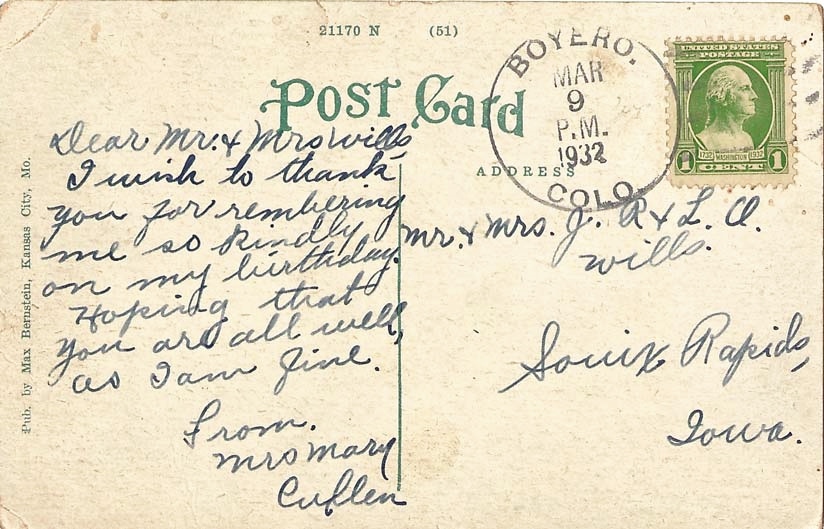 21170 N (51)
POST CARD
ADDRESS
BOYERO.
MAR
9
P.M.
1932
COLO.
UNITED STATES
POSTAGE
1732 WASHINGTON 1932
1 CENT 1
Pub. by Max Bernstein, Kansas City, Mo.
Dear Mr. & Mrs Wills
I wish to thank
you for rembering
me so kindly
on my birthday.
Hoping that
you are all well,
as I am fine.
From.
Mrs Mary
Cullen
Mr. & Mrs. J. R & L. A.
Wills.
Souix Rapids,
Iowa.